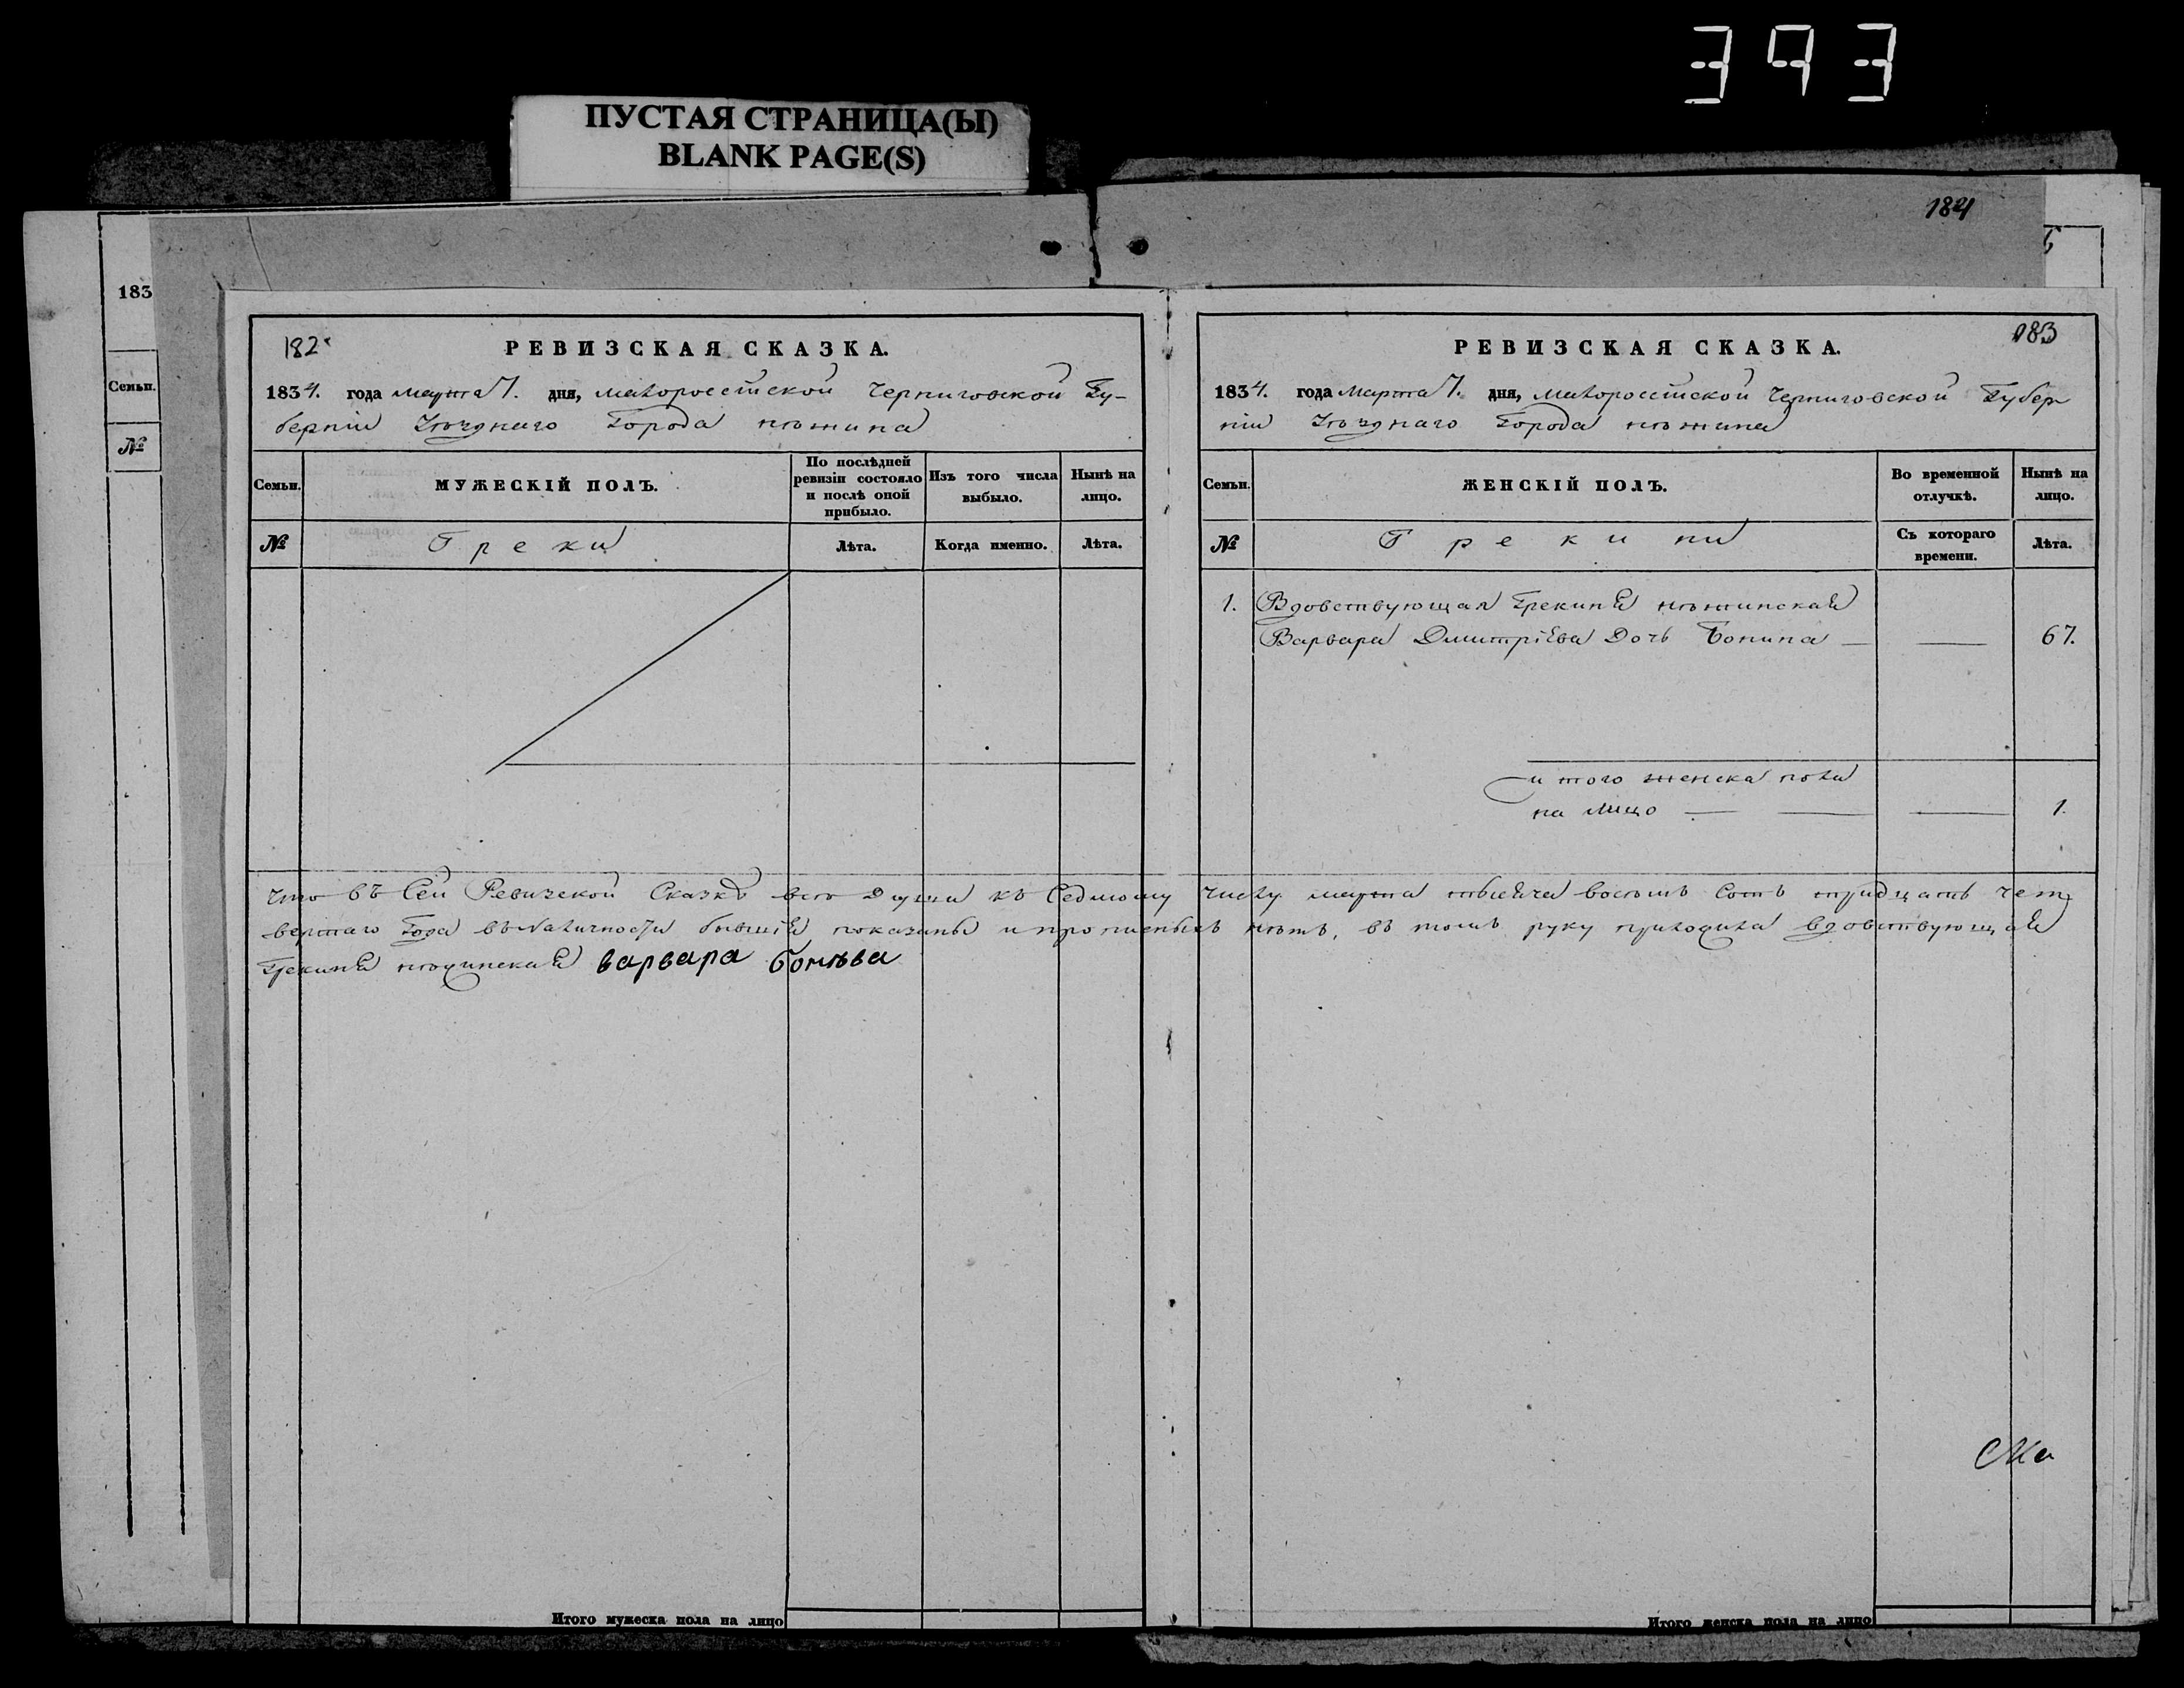 393
ПУСТАЯ СТРАНИЦА(Ы)
BLANK PAGE(S)
184
183
Семьи.
№
182.
РЕВИЗСКАЯ СКАЗКА.
1834. года марта 7. дня, малороссійской Черниговской Гу-
берніи Уѣзднаго Города нѣжина
Семьи.
МУЖЕСКІЙ ПОЛЪ.
По послѣдней ревизіи состояло и послѣ оной прибыло.
Изъ того числа выбыло.
Нынѣ на лицо.
№
Греки
Лѣта.
Когда именно.
Лѣта.
183
РЕВИЗСКАЯ СКАЗКА.
1834. года Марта 7. дня, малороссійской Черниговской Губер
ніи Уѣзднаго Города нѣжина
Семьи.
ЖЕНСКІЙ ПОЛЪ.
Во временной отлучкѣ.
Нынѣ на лицо.
№
Грекини
Съ котораго времени.
Лѣта.
1. Вдовствующая Грекиня нѣжинская
Варвара Дмитріева Дочь Бонина — — 67.
и того женска пола
на лицо — — — 1.
Что въ Сей Ревизской Сказкѣ всѣ Души къ Седмому Числу марта тысяча восемь Сотъ тридцать чет
вертаго Года въ наличности бывшія показаны и прописныхъ нѣтъ, въ томъ руку приложила вдовствующая
Грекиня нѣжинская варвара бонѣва
Итого мужеска пола на лицо
Итого женска пола на лицо